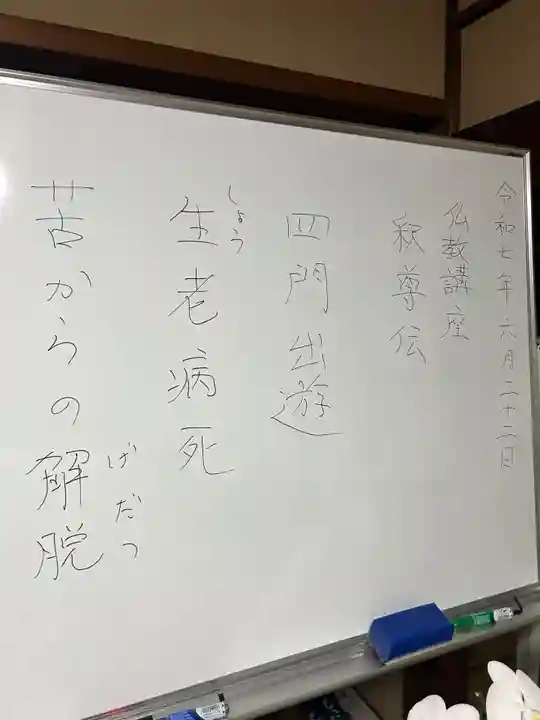 令和七年六月二十二日
仏教講座
釈尊伝
四門出遊
しょう
生老病死
げだつ
苦からの解脱